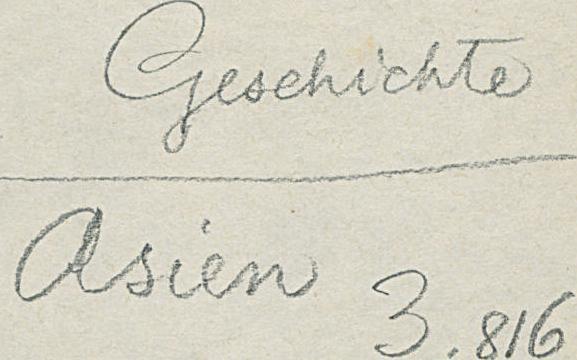 Geschichte
Asien 3.816